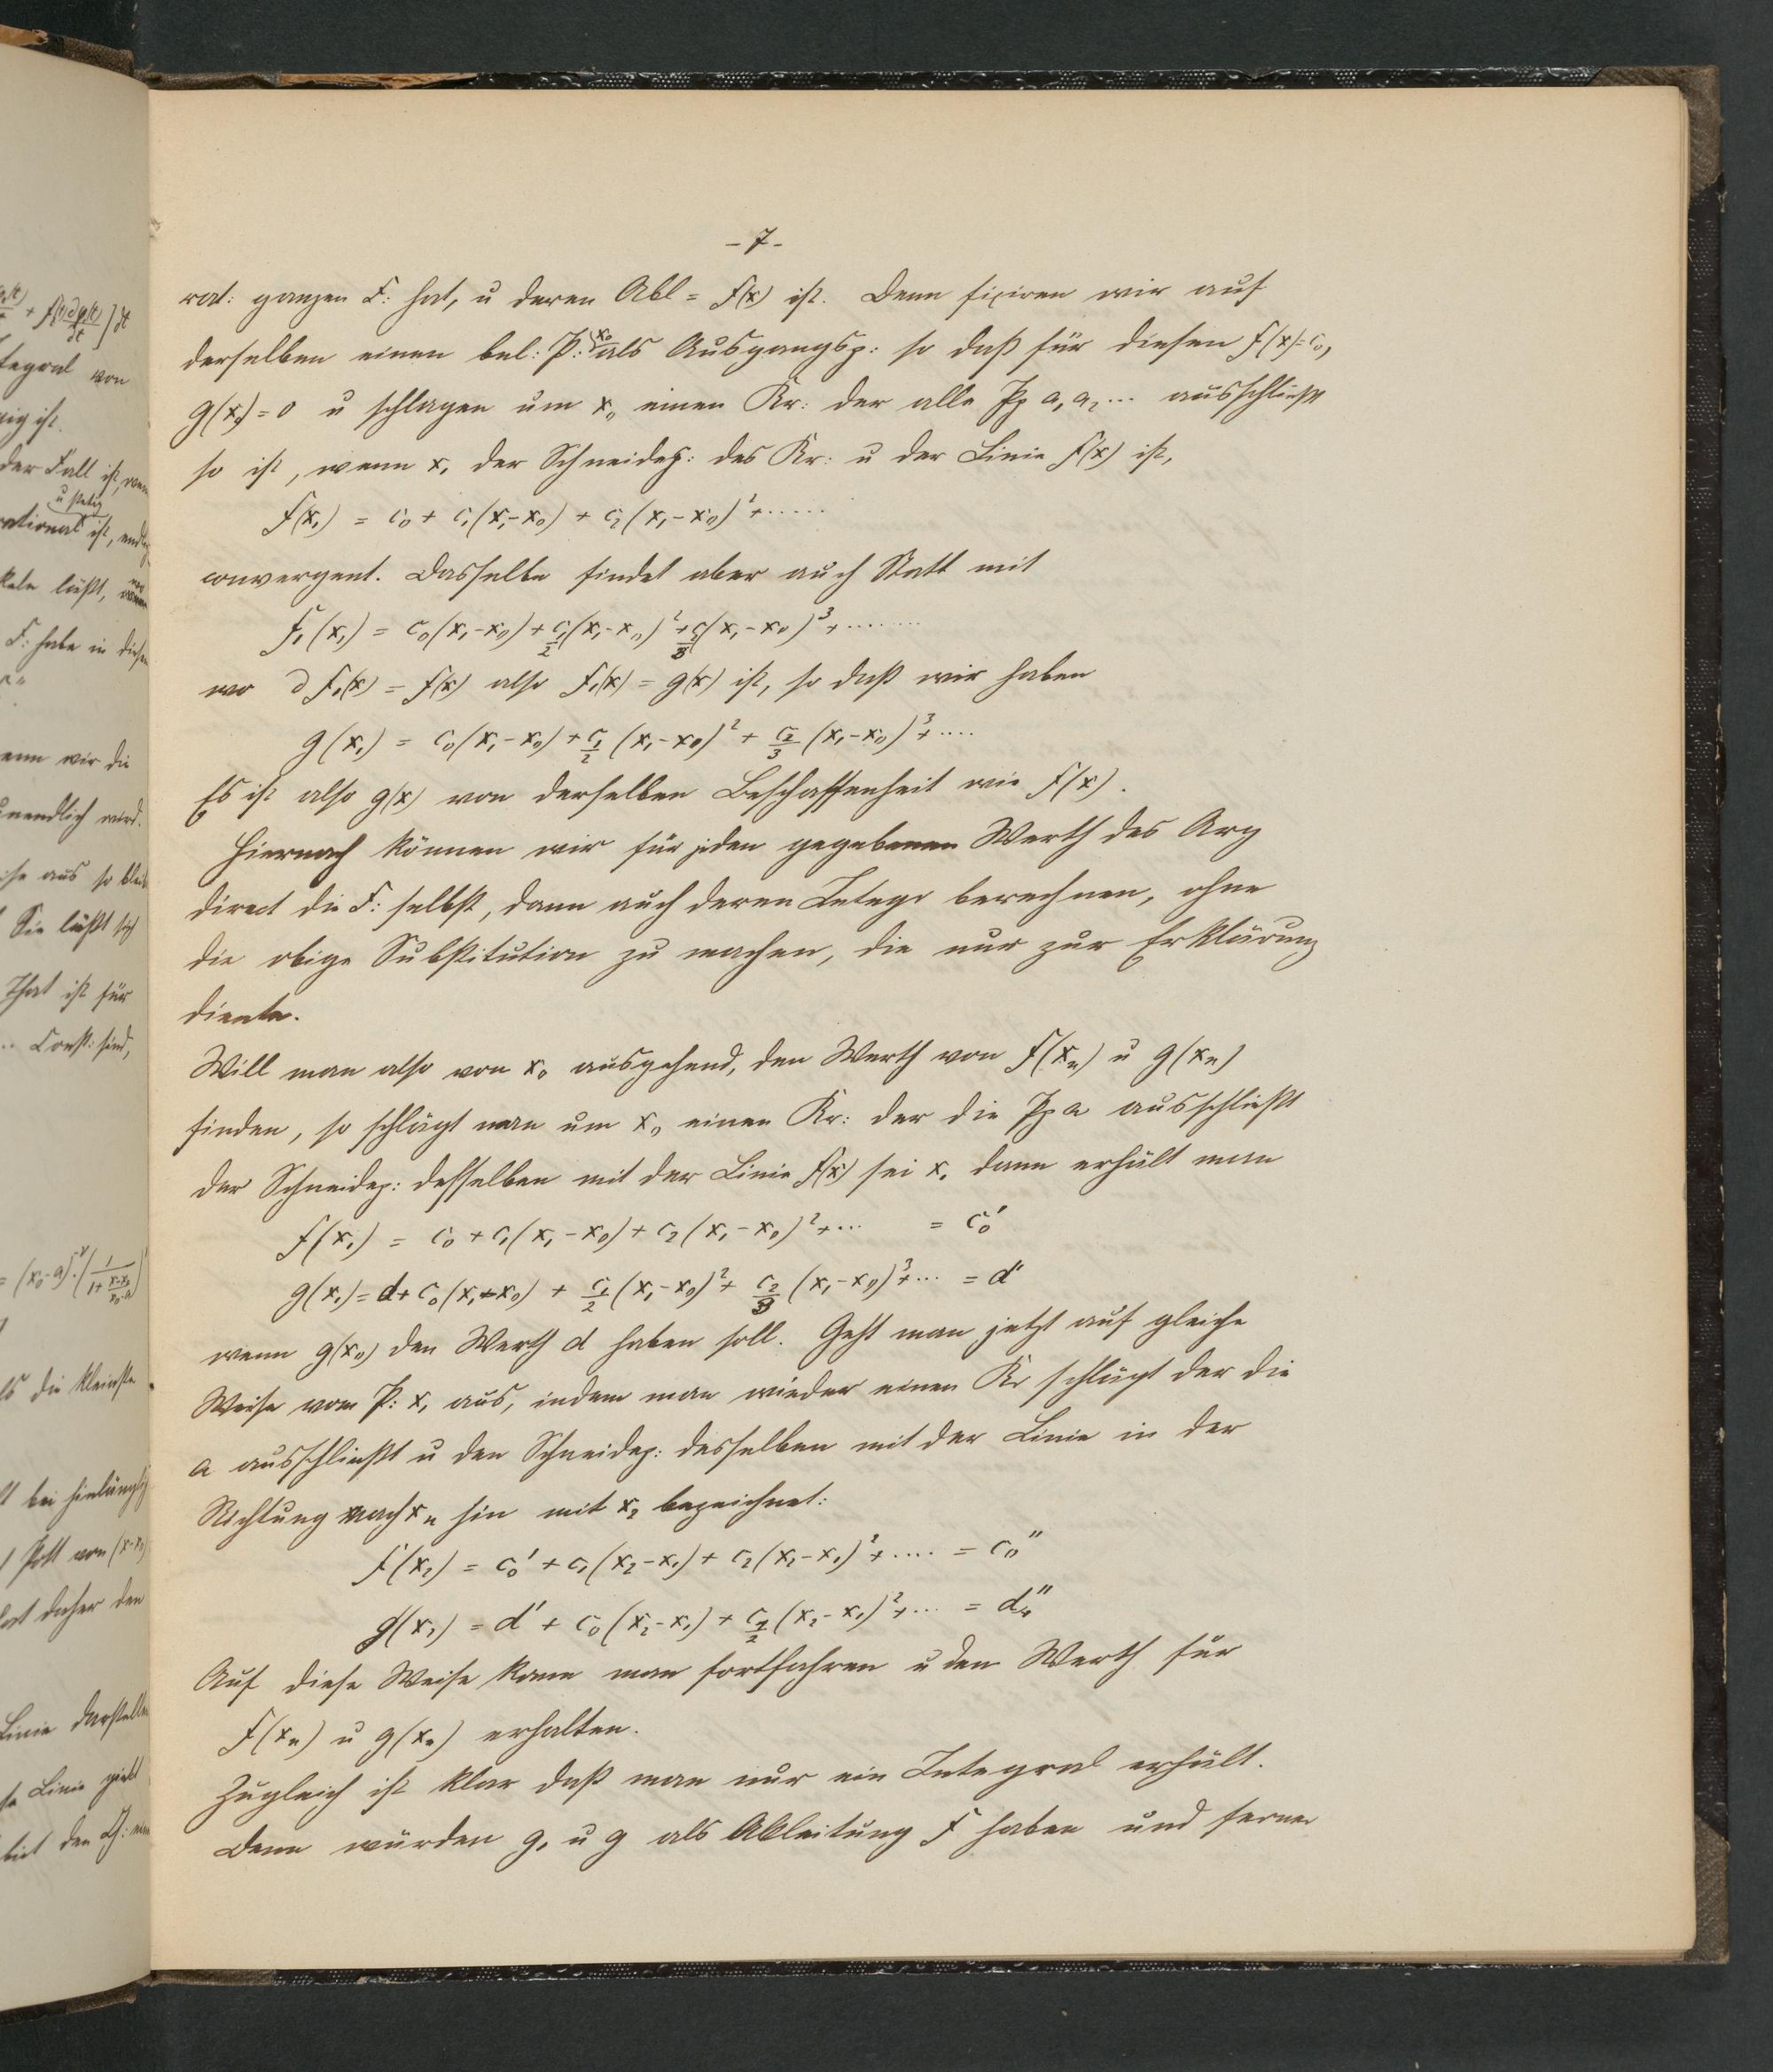 - 7 -
rat: ganzen F: hat, u deren Abl = f(x) ist. Denn fixiren wir auf
derselben einen bel: P: x₀ als Ausgangsp: so daß für diesen f(x)=c₀,
g(x₀)=0 u schlagen um x₀ einen Kr: der alle Pp a₁ a₂ ... ausschließt
so ist, wenn x₁ der Schneidep: des Kr: u der Linie f(x) ist,
f(x₁) = c₀ + c₁(x₁-x₀) + c₂(x₁-x₀)² + ......
convergent. Dasselbe findet aber auch Statt mit
f₁(x₁) = c₀(x₁-x₀) + c₁/2 (x₁-x₀)² + c₂/3 (x₁-x₀)³ + .......
wo ∂f₁(x) = f(x) also f₁(x) = g(x) ist, so daß wir haben
g(x₁) = c₀(x₁-x₀) + c₁/2 (x₁-x₀)² + c₂/3 (x₁-x₀)³ + ....
Es ist also g(x) von derselben Beschaffenheit wie f(x).
Hiernach können wir für jeden gegebenen Werth des Arg
direct die F: selbst, dann auch deren Integr berechnen, ohne
die obige Substitution zu machen, die nur zur Erklärung
diente.
Will man also von x₀ ausgehend, den Werth von f(xₙ) u g(xₙ)
finden, so schlägt man um x₀ einen Kr: der die Pp a ausschließt
der Schneidep: desselben mit der Linie f(x) sei x₁ dann erhält man
f(x₁) = c₀ + c₁(x₁-x₀) + c₂(x₁-x₀)² + ... = c₀'
g(x₁) = d + c₀(x₁-x₀) + c₁/2 (x₁-x₀)² + c₂/3 (x₁-x₀)³ + ... = d'
wenn g(x₀) den Werth d haben soll. Geht man jetzt auf gleiche
Weise vom P: x₁ aus, indem man wieder einen Kr schlägt der die
a ausschließt u den Schneidep: desselben mit der Linie in der
Richtung nach xₙ hin mit x₂ bezeichnet:
f(x₂) = c₀' + c₁(x₂-x₁) + c₂(x₂-x₁)² + .... = c₀''
g(x₂) = d' + c₀(x₂-x₁) + c₁/2 (x₂-x₁)² + ... = d''
Auf diese Weise kann man fortfahren u den Werth für
f(xₙ) u g(xₙ) erhalten.
Zugleich ist klar daß man nur ein Integral erhält.
Denn würden g₁ u g als Ableitung f haben und ferner